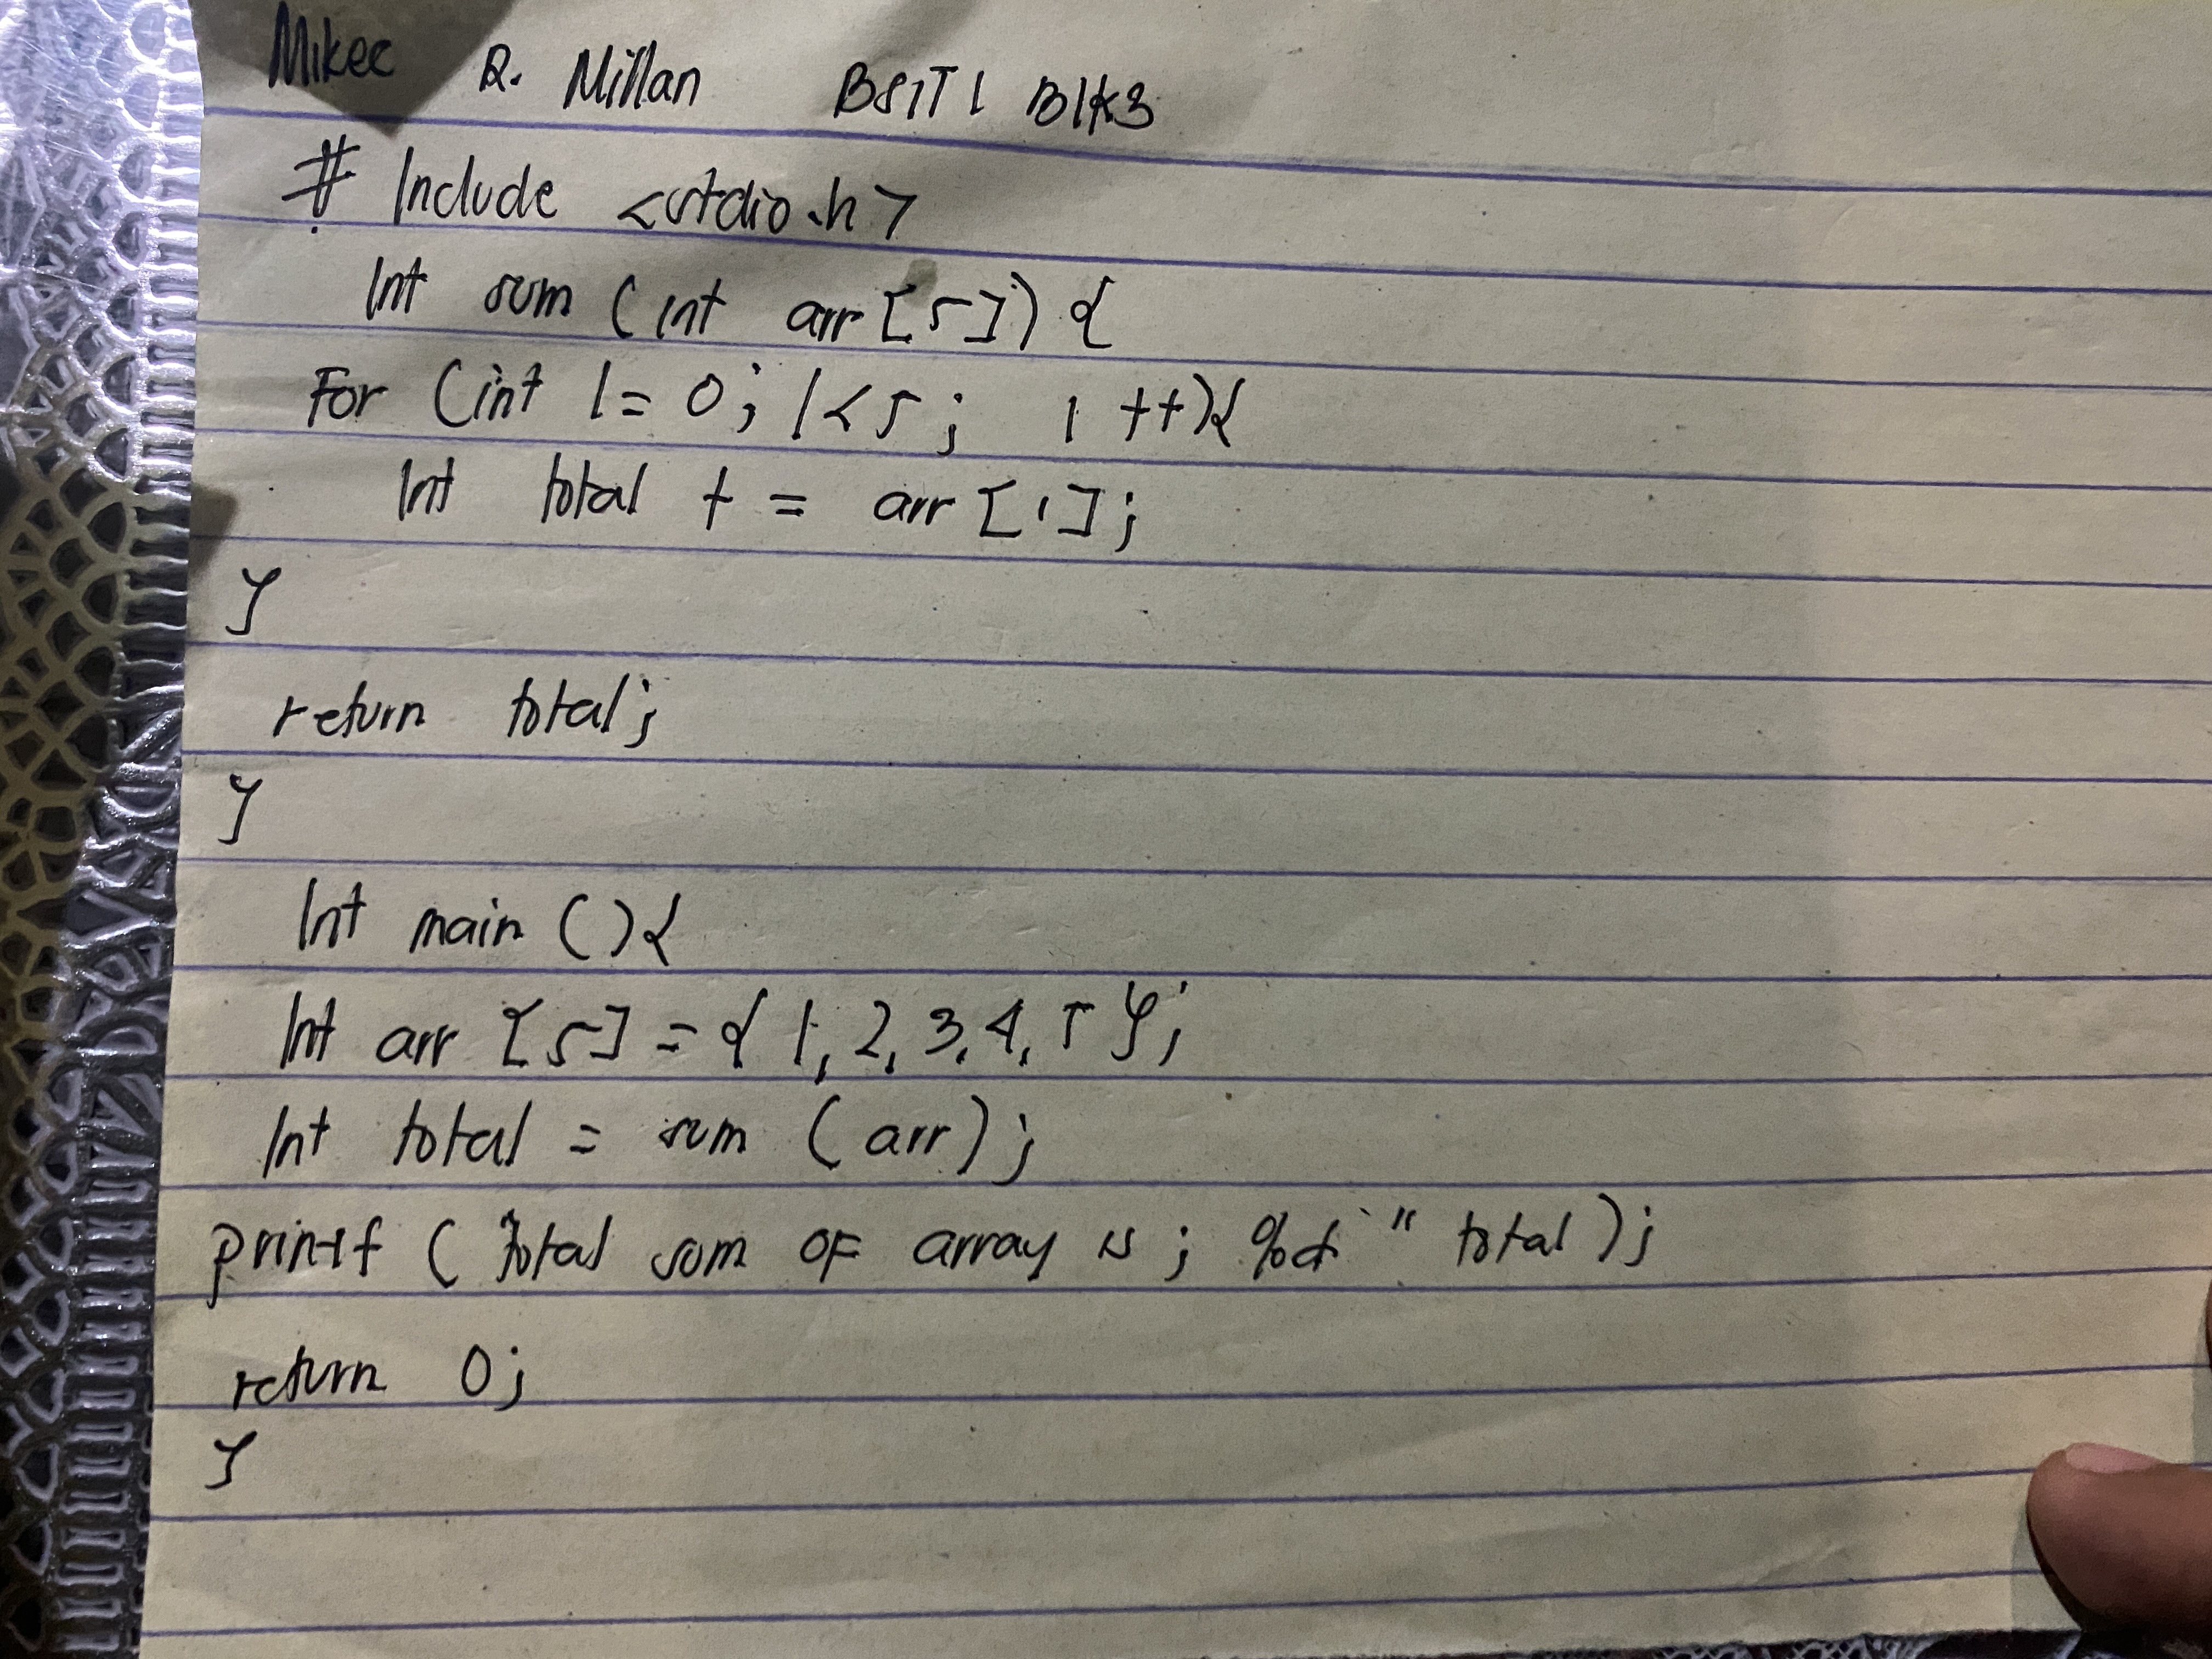 Mikee R. Millan BSIT 1 Blk3
# Include <stdio.h>
Int sum (int arr [5]) {
For (int I = 0; I < 5; i ++){
Int total + = arr [i];
}
return total;
}
Int main () {
Int arr [5] = { 1, 2, 3, 4, 5 };
Int total = sum (arr);
printf ( Total sum of array is ; %d " total );
return 0;
}